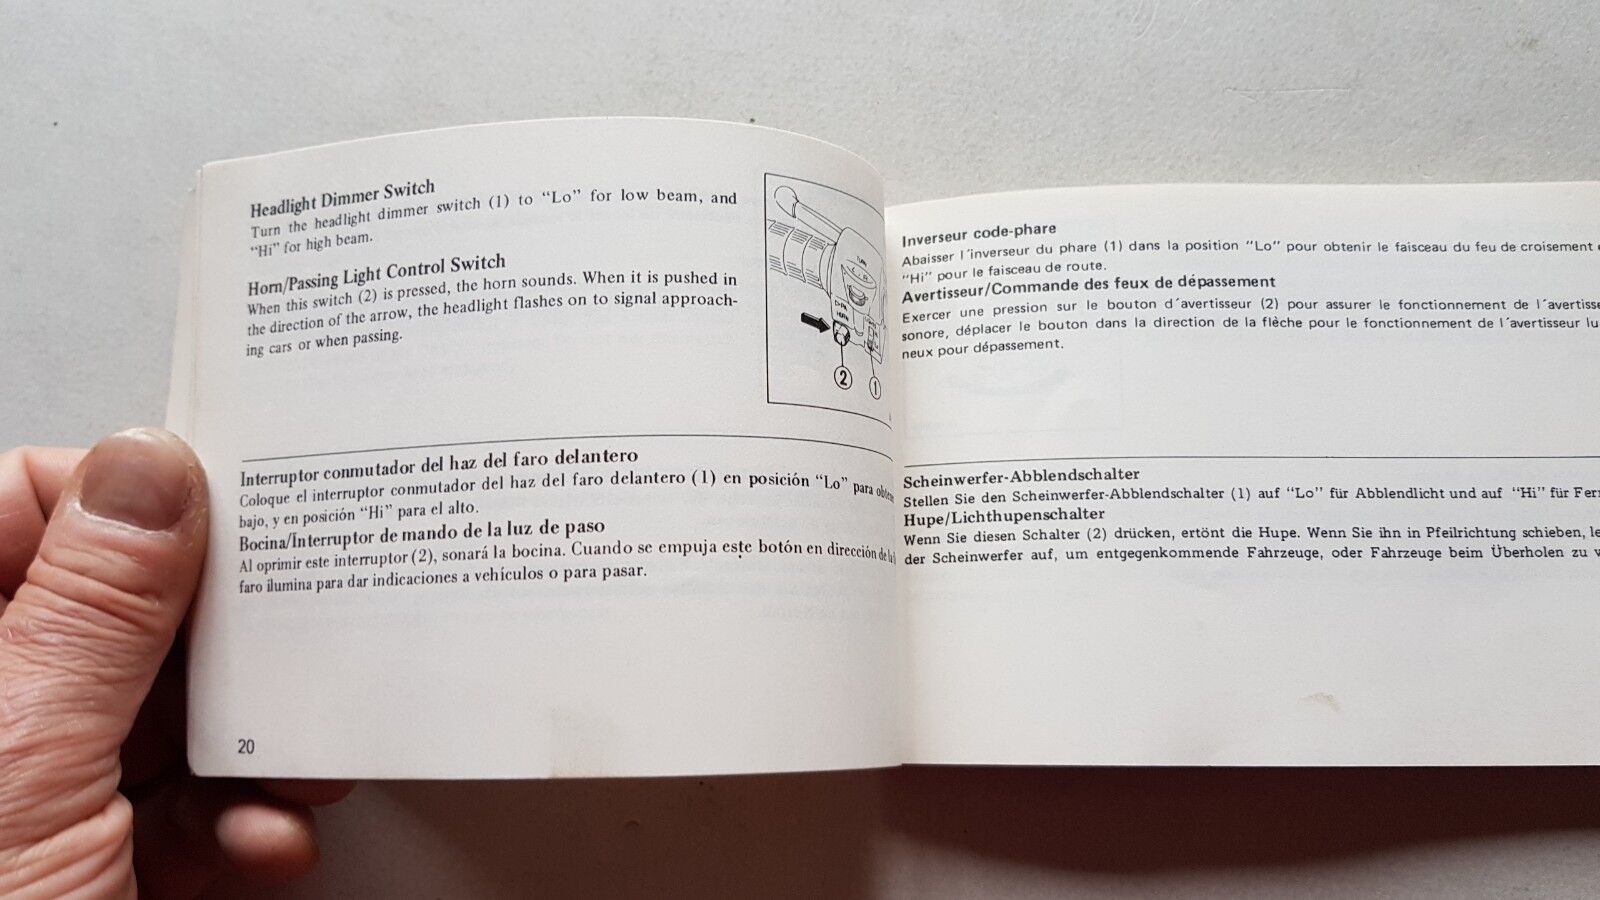 Headlight Dimmer Switch
Turn the headlight dimmer switch (1) to “Lo” for low beam, and
“Hi” for high beam.
Horn/Passing Light Control Switch
When this switch (2) is pressed, the horn sounds. When it is pushed in
the direction of the arrow, the headlight flashes on to signal approach-
ing cars or when passing.
HORN
2
1
Interruptor conmutador del haz del faro delantero
Coloque el interruptor conmutador del haz del faro delantero (1) en posición “Lo” para
bajo, y en posición “Hi” para el alto.
Bocina/Interruptor de mando de la luz de paso
Al oprimir este interruptor (2), sonará la bocina. Cuando se empuja este botón en dirección de
faro ilumina para dar indicaciones a vehículos o para pasar.
20
Inverseur code-phare
Abaisser l´inverseur du phare (1) dans la position “Lo” pour obtenir le faisceau du feu de croisement
“Hi” pour le faisceau de route.
Avertisseur/Commande des feux de dépassement
Exercer une pression sur le bouton d´avertisseur (2) pour assurer le fonctionnement de l´avertisse
sonore, déplacer le bouton dans la direction de la flèche pour le fonctionnement de l´avertisseur lu
neux pour dépassement.
Scheinwerfer-Abblendschalter
Stellen Sie den Scheinwerfer-Abblendschalter (1) auf “Lo” für Abblendlicht und auf “Hi” für Fer
Hupe/Lichthupenschalter
Wenn Sie diesen Schalter (2) drücken, ertönt die Hupe. Wenn Sie ihn in Pfeilrichtung schieben, le
der Scheinwerfer auf, um entgegenkommende Fahrzeuge, oder Fahrzeuge beim Überholen zu